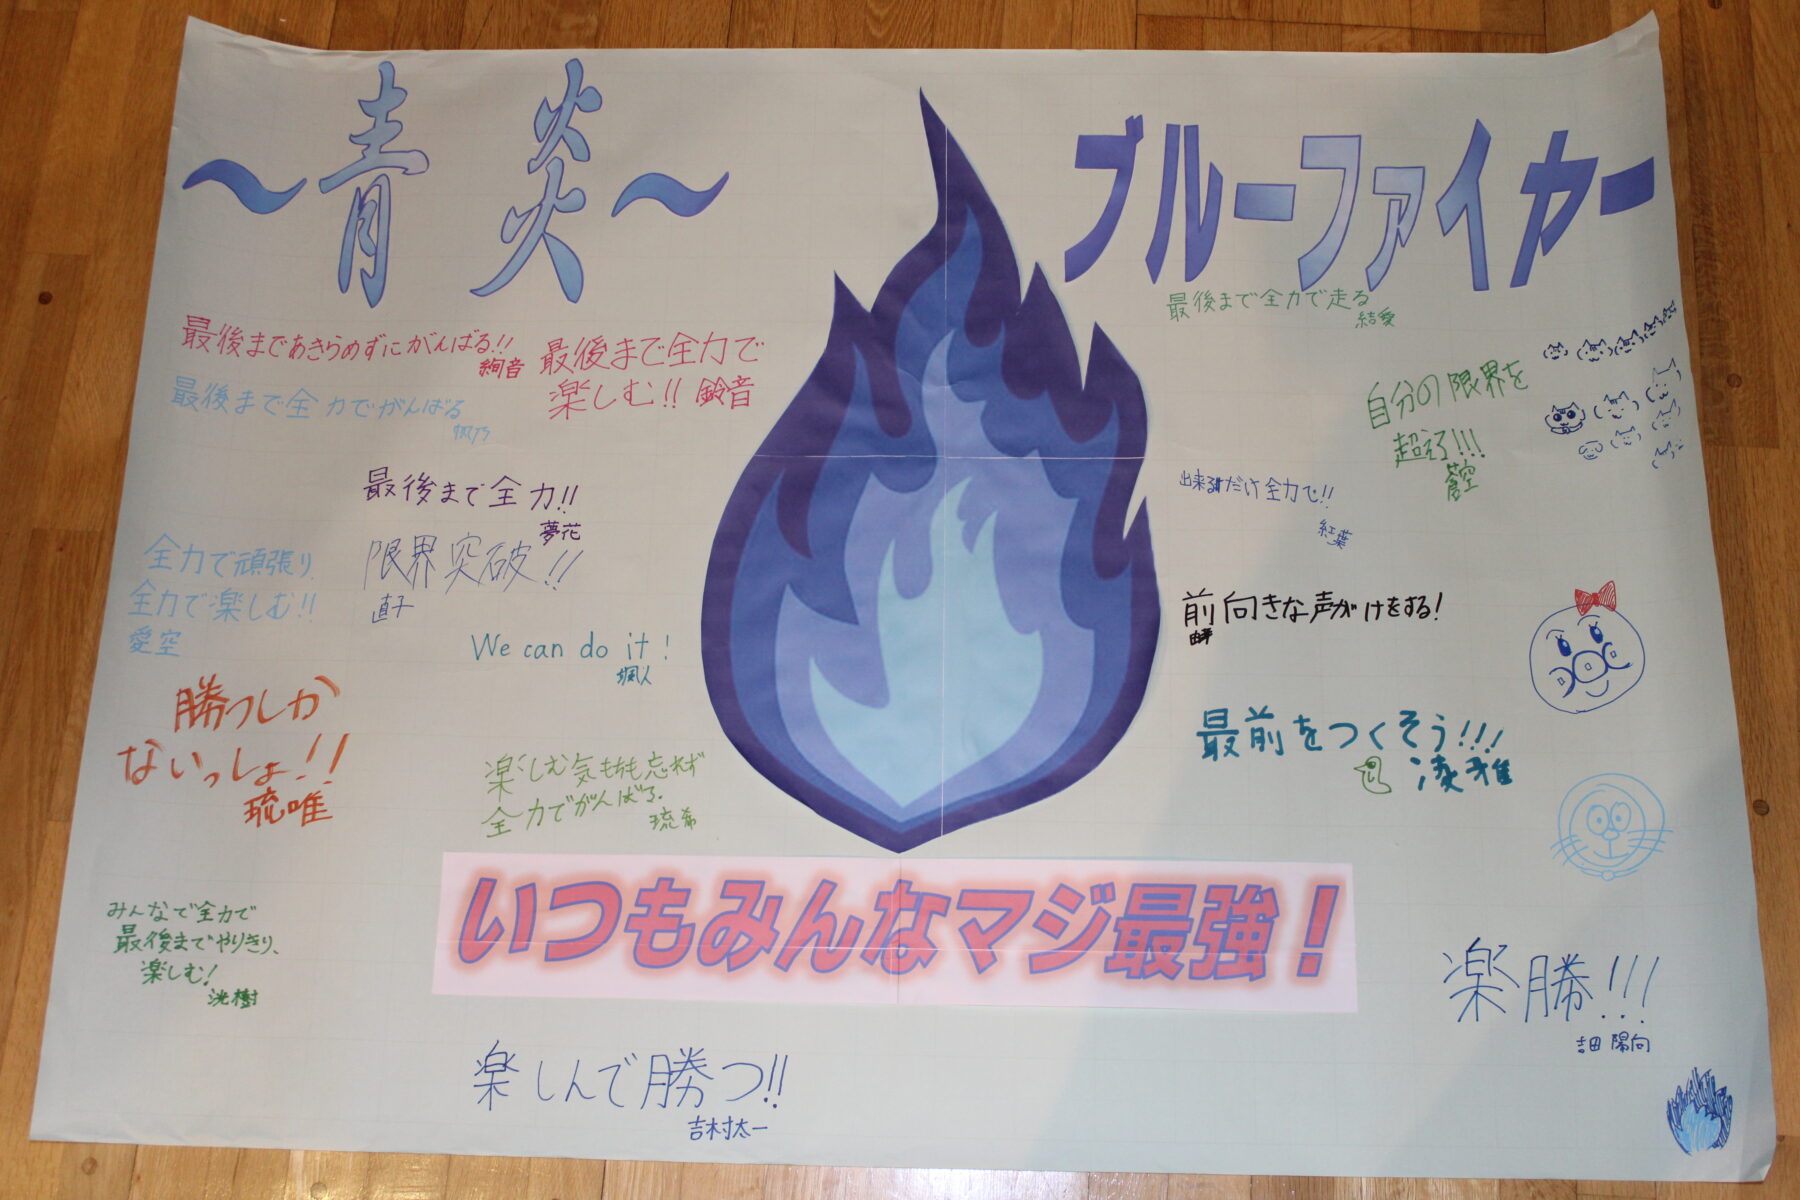 ～青炎～
ブルーファイヤー
最後まであきらめずにがんばる!!
絢音
最後まで全力で
楽しむ!! 鈴音
最後まで全力でがんばる
最後まで全力で走る
結愛
自分の限界を
超えろ!!!
蒼空
最後まで全力!!
夢花
限界突破!!
直子
出来るだけ全力で!!
紅葉
全力で頑張り
全力で楽しむ!!
愛空
We can do it!
颯人
前向きな声がけをする!
勝つしか
ないっしょ!!
琉唯
最前をつくそう!!!
凌雅
楽しむ気もちも忘れず
全力でがんばる.
琉希
いつもみんなマジ最強！
みんなで全力で
最後までやりきり、
楽しむ!
洸樹
楽勝!!!
吉田 陽向
楽しんで勝つ!!
吉村太一